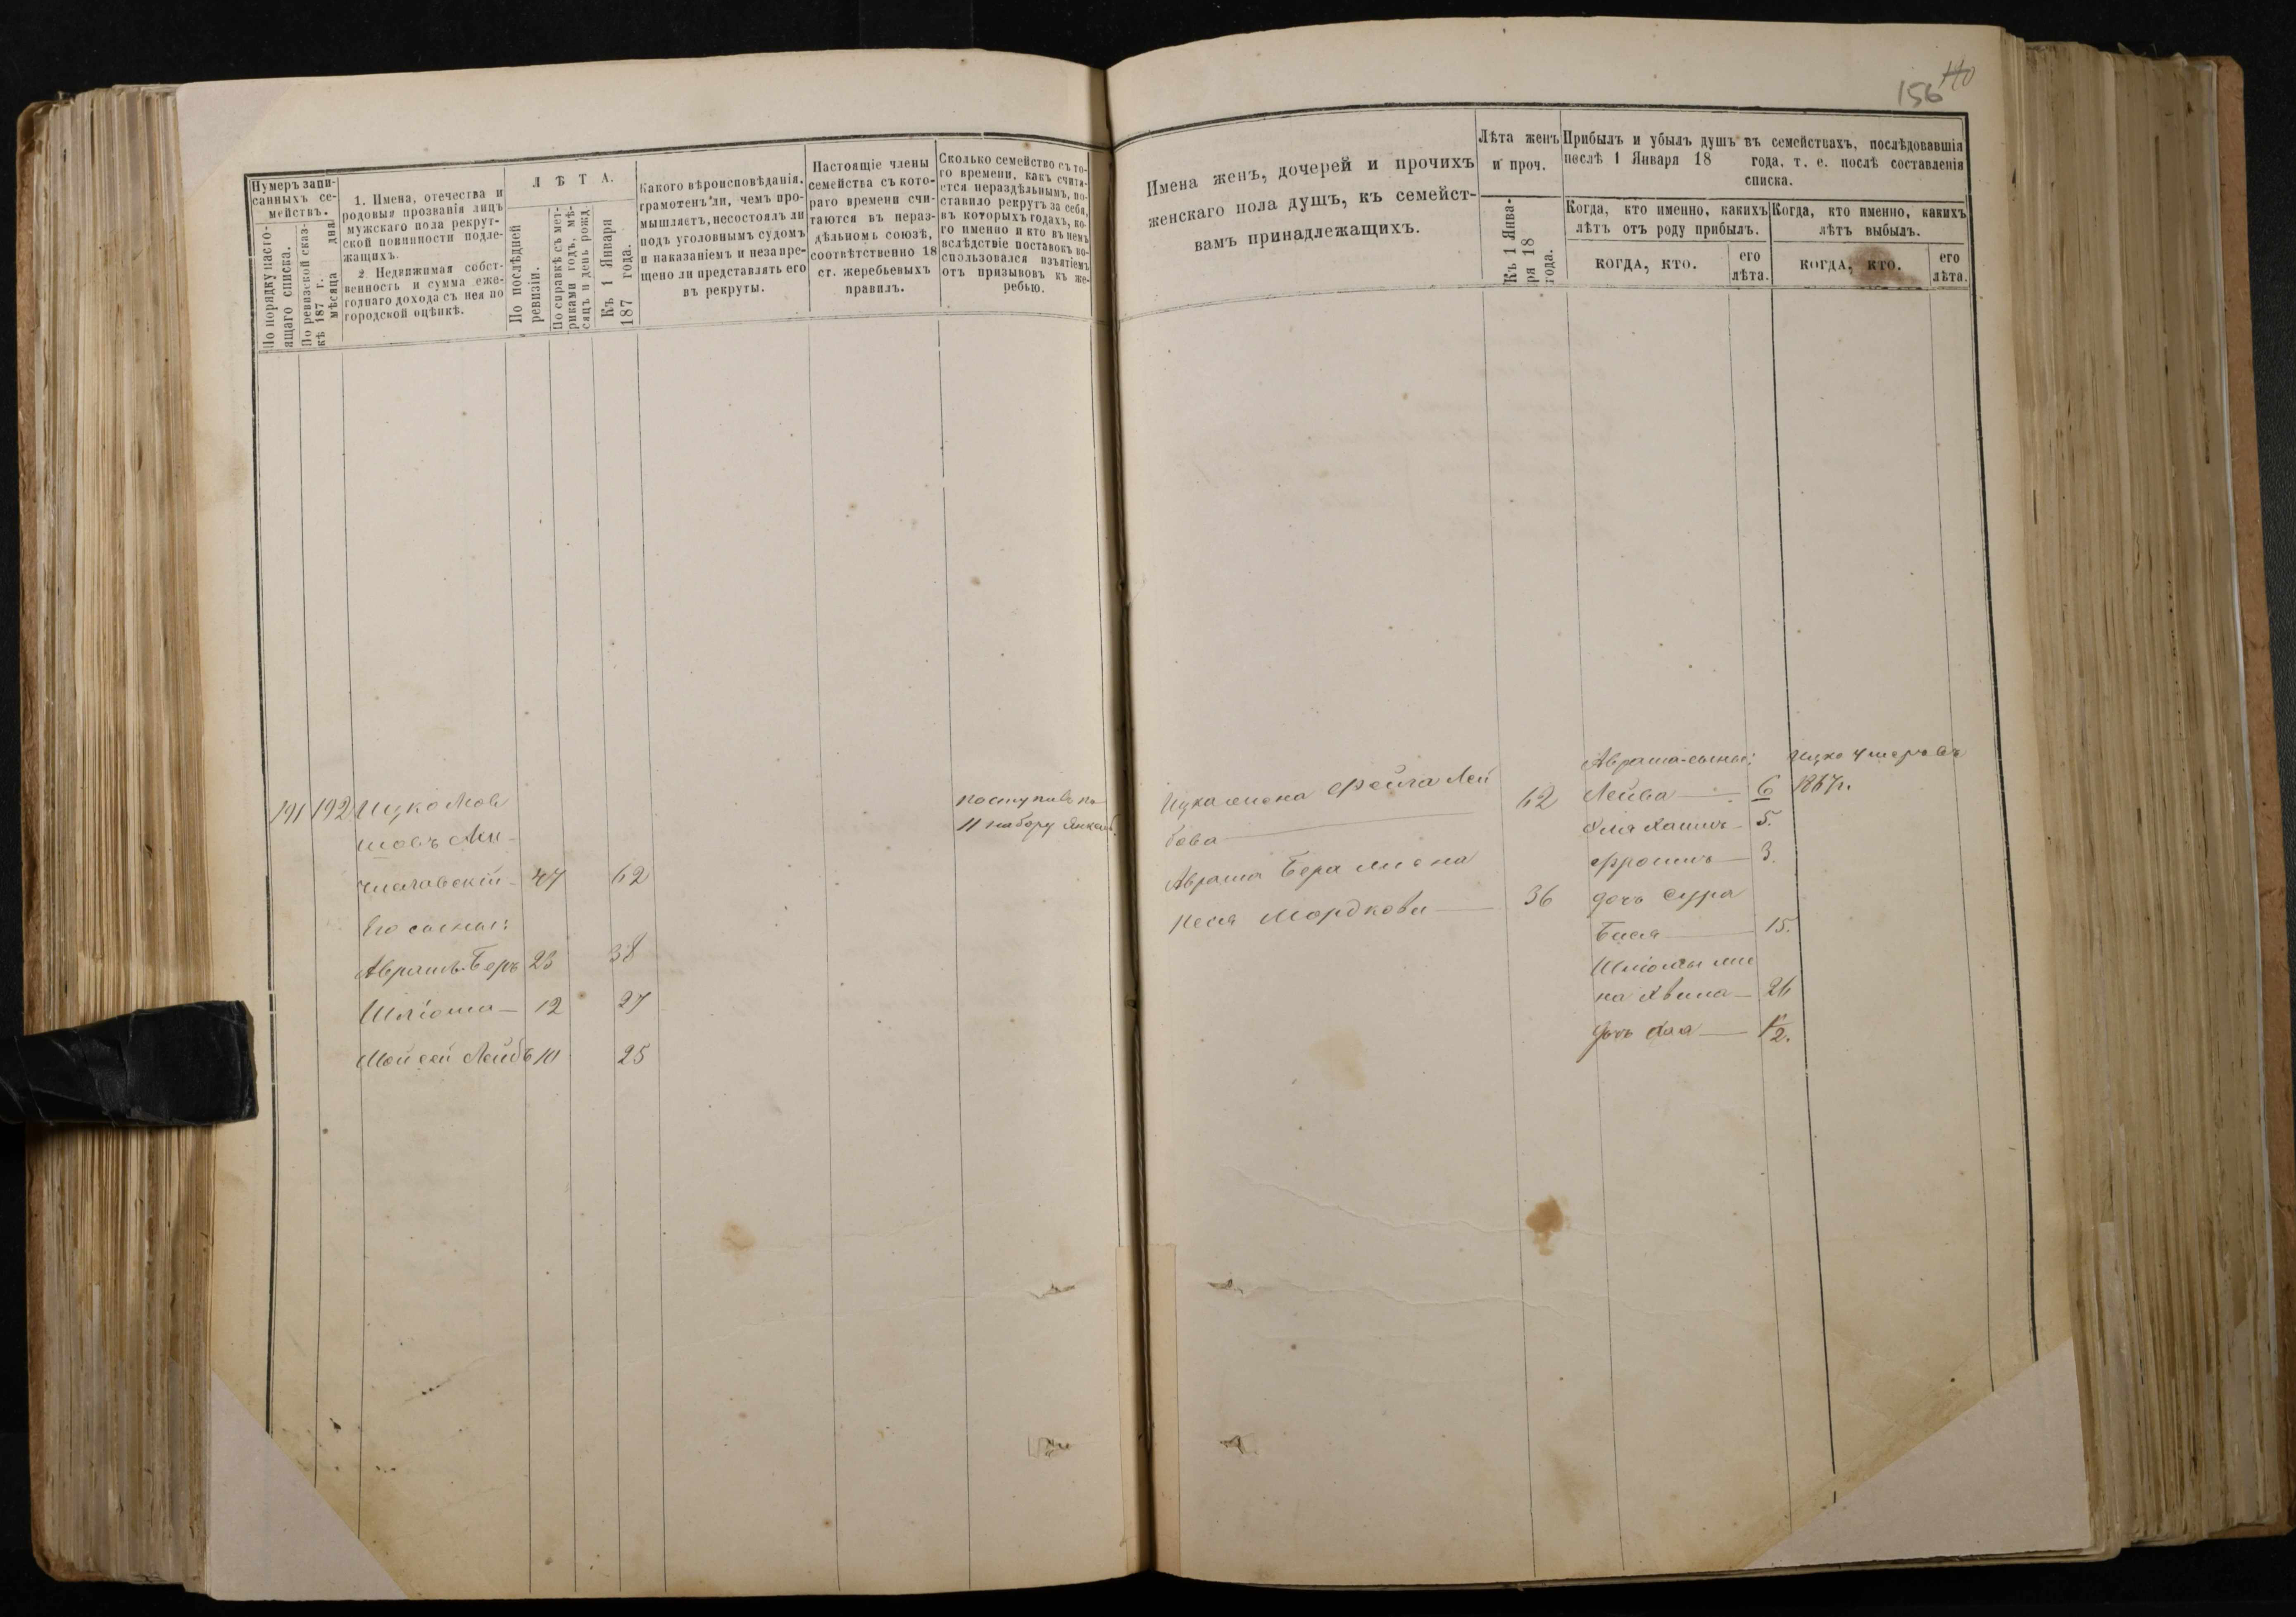 156 110
Нумеръ запи-
санныхъ се-
мействъ.
По порядку насто-
ящаго списка.
По ревизской сказ-
кѣ 187 г.
мѣсяца дня
1. Имена, отечества и
родовыя прозванія лицъ
мужскаго пола рекрут-
ской повинности подле-
жащихъ.
2. Недвижимая собст-
венность и сумма еже-
годнаго дохода съ нея по
городской оцѣнкѣ.
Л Ѣ Т А.
По послѣдней
ревизіи.
По справкѣ съ мет-
риками годъ, мѣ-
сяцъ и день рожд.
Къ 1 Января
187 года.
Какого вѣроисповѣданія.
грамотенъ ли, чемъ про-
мышляетъ, несостоялъ ли
подъ уголовнымъ судомъ
и наказаніемъ и незапре-
щено ли представлять его
въ рекруты.
Настоящіе члены
семейства съ кото-
раго времени счи-
таются въ нераз-
дѣльномъ союзѣ,
соотвѣтственно 18
ст. жеребьевыхъ
правилъ.
Сколько семейство съ то-
го времени, какъ счита-
ется нераздѣльнымъ, по-
ставило рекрутъ за себя,
въ которыхъ годахъ, ко-
го именно и кто въ немъ
вслѣдствіе поставокъ во-
спользовался изъятіемъ
отъ призывовъ къ же-
ребью.
Имена женъ, дочерей и прочихъ
женскаго пола душъ, къ семейст-
вамъ принадлежащихъ.
Лѣта женъ
и проч.
Къ 1 Янва-
ря 18
года.
Прибылъ и убылъ душъ въ семействахъ, послѣдовавшія
песлѣ 1 Января 18 года. т. е. послѣ составленія
списка.
Когда, кто именно, какихъ
лѣтъ отъ роду прибылъ.
КОГДА, КТО.
его
лѣта.
Когда, кто именно, какихъ
лѣтъ выбылъ.
КОГДА, КТО.
его
лѣта.
191 192 Ицко Мов
шовъ
47 62
Его сыны:
Аврамъ-Беръ 23 38
Шліома 12 27
Мойсей Лейбъ 10 25
поступилъ по
11 набору
Ицка жена Фейга Лей
бова 62
Аврама Бера жена
Песя Мордкова 36
Аврама-сыны:
Лейба 6
5.
3.
дочь Сура
Бася 15.
Шліомы же
на 26
дочь Хая 1/2.
Ицко умеръ въ
1867г.